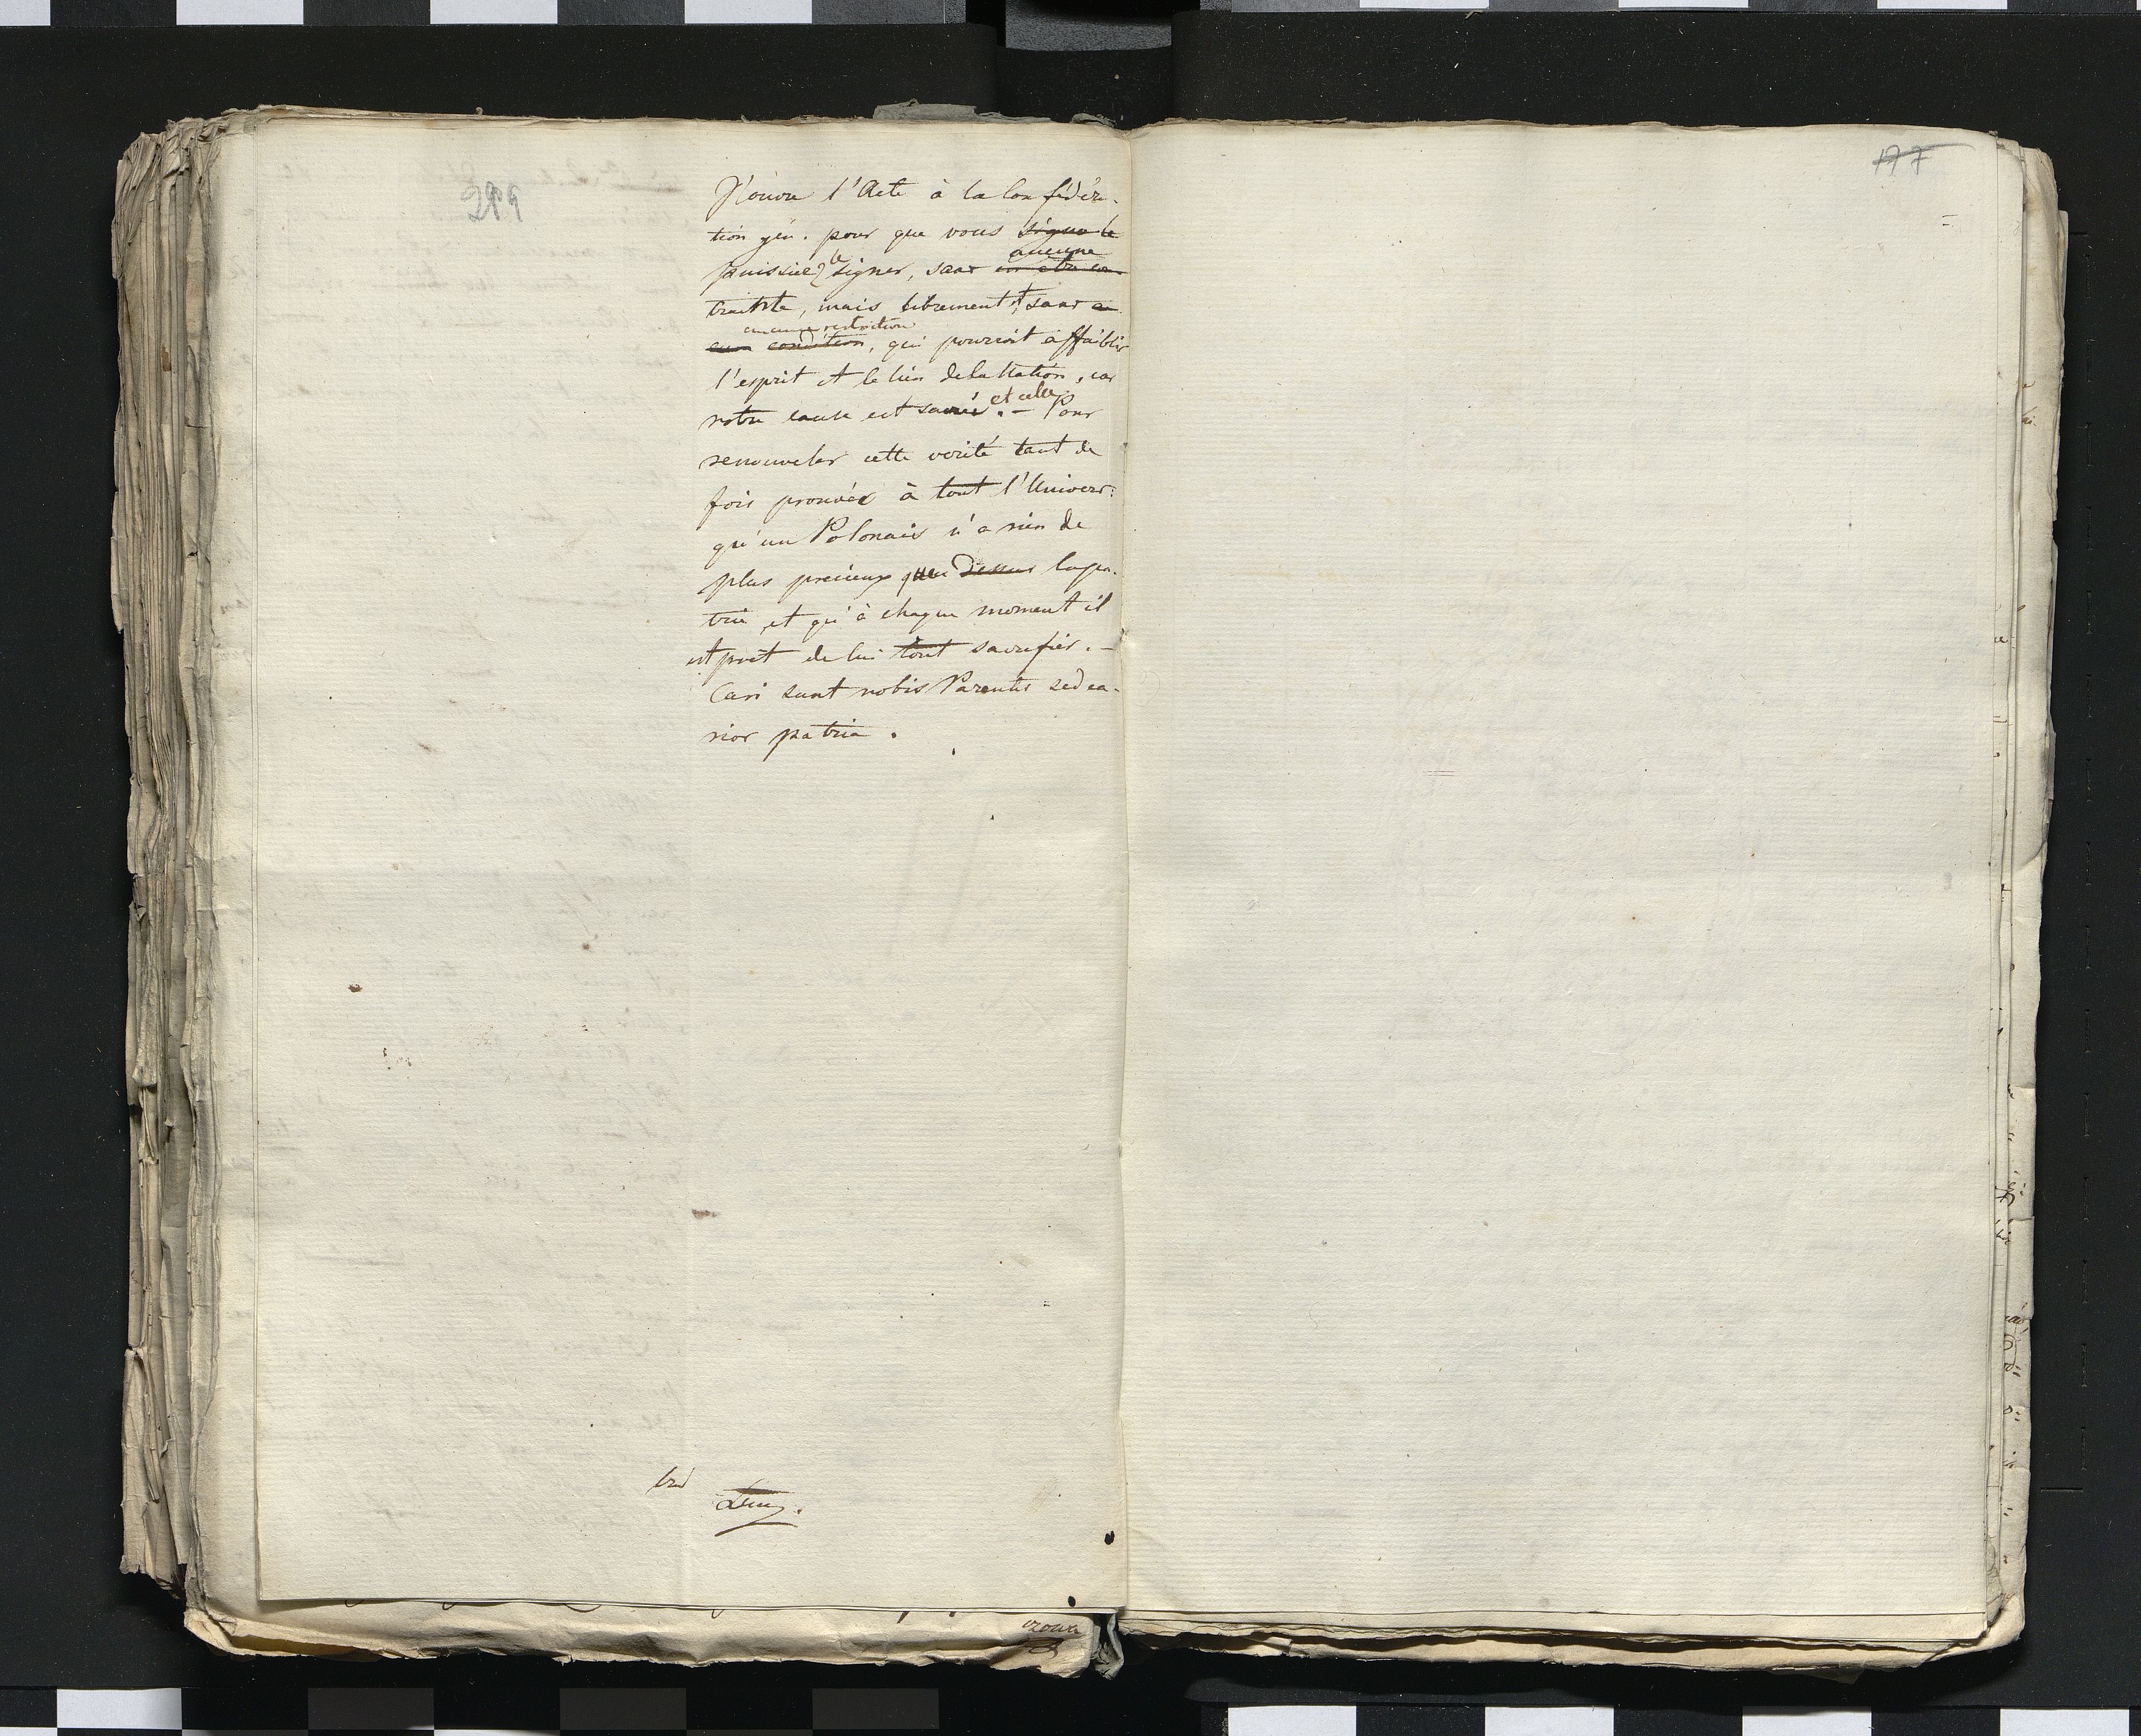 299
177
J'ouvre l'Acte à la Confédéra-
tion gén. pour que vous signe le
aucune
puissiez le signer, sans en etre con
trainte, mais librement, et sans a
aucune restriction
cun condition, qui pourroit affaiblir
l'esprit et le lien de la Nation, car
et celle
notre cause est sacrée. – Pour
renouveler cette verité tant de
fois prouvée à tout l'Univers:
qu'un Polonais n'a rien de
plus precieux que dessus la pa-
trie et qu'à chaque moment il
est prêt de lui tout sacrifier. –
Cari sunt nobis Parentes sed ca-
rior patria.